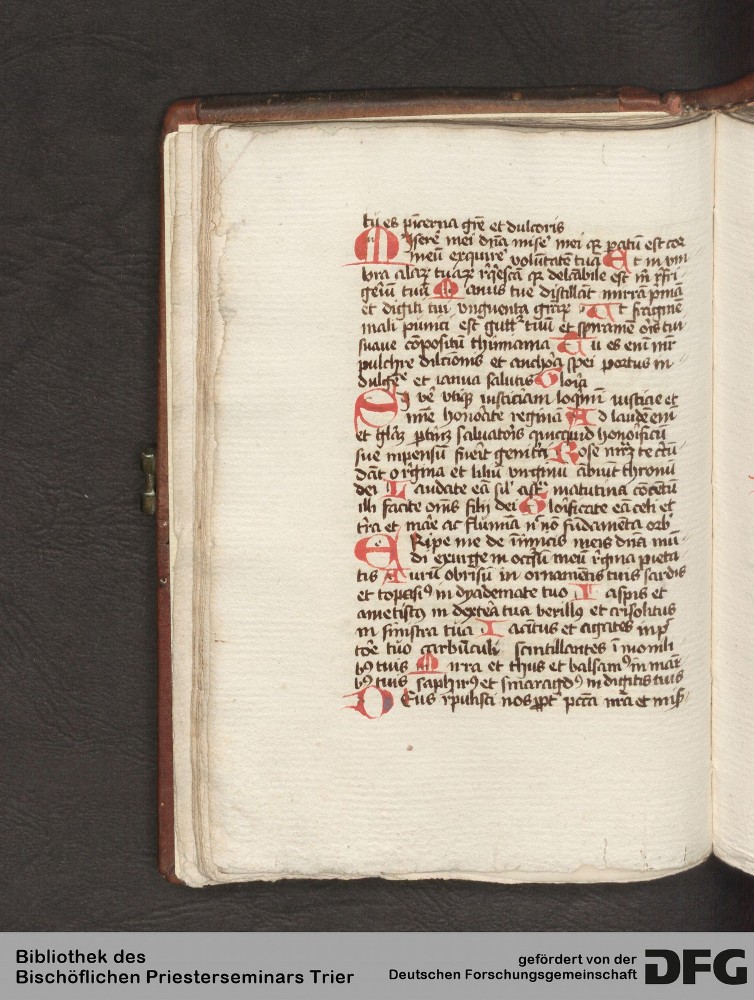 tu es pīcerna grē et dulcoris
Miserē mei dn̄a misē mei qꝛ paratū est cor
meū exquirē volūtatē tuā Et in vm
bra alaꝝ tuaꝝ reqescā qꝛ delcābile est m̄ refri
geriū tuū Manus tue distillāt mirrā pⁱmā
et digiti tui vnguenta grāꝝ Ut fragmē
mali punici est guttˀ tuū et spiramē oris tui
suaue cōpositū thimiama Tu es enī mr̄
pulchre dilcionis et anchoꝛa spei portus in
dulgēe et ianua salutis Gloria
Si vē vtiqꝫ iusticiam loqmī iusticie et
mīe honorate reginā Ad laudē enī
et glāꝫ ptinꝫ saluatoris quicquid honorificū
sue inpensū fuerit genitci Rose
dāt o regina et liliū virginū ābiūt thronū
dei Laudate eā sil' astꝛ matutina cōcētū
illi facite om̄s filij dei Glorificate eā celi et
tr̄ra et marē ac flumīa nˀ nō fūdamēta orb
ERipe me de inimicis meis dn̄a mū
di exurge in occursū meū regina pieta
tis Aurū obrisū in ornamētis tuis sardis
et topasiꝰ in dyademate tuo Iaspis et
ametistꝰ in dextera tua berillꝰ et crisolitus
in sinistra tua Iacītus et agates in pe
tōe tuo carbūculi scintillantes ī monili
bꝰ tuis Mirra et thus et balsamꝰ in manī
bꝰ tuis saphirꝰ et smaragdꝰ in digitis tuis
DEus repulisti nos ꝓpt̄ pcc̄a nr̄a et mis̄
Bibliothek des
Bischöflichen Priesterseminars Trier
gefördert von der
Deutschen Forschungsgemeinschaft
DFG